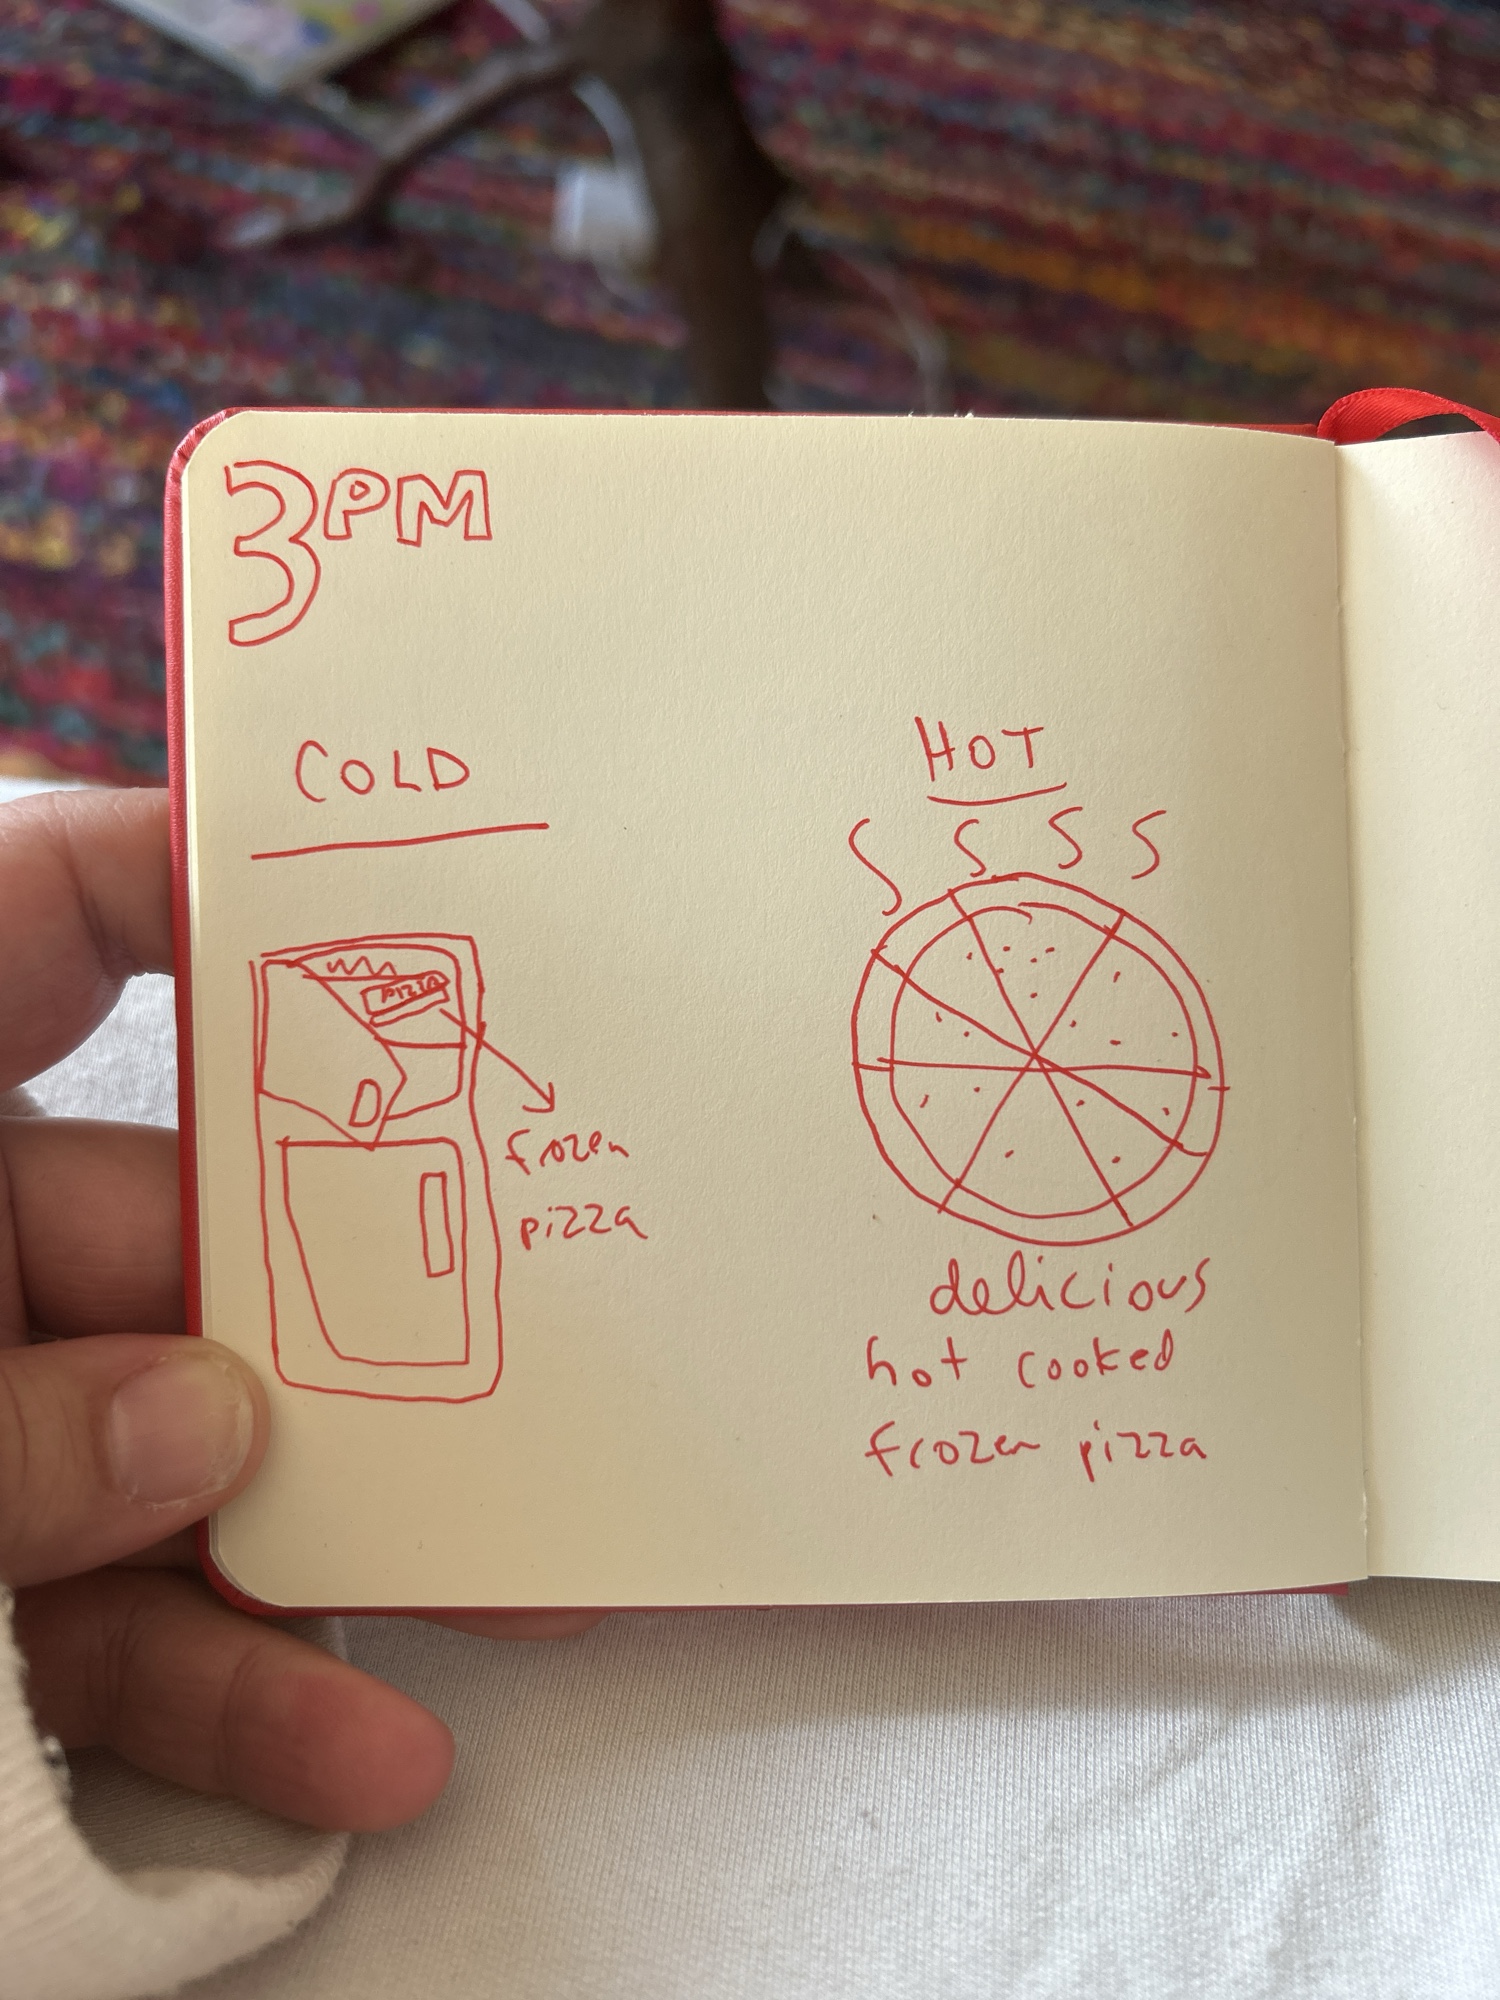 3PM
COLD
HOT
pizza
frozen
pizza
delicious
hot cooked
frozen pizza